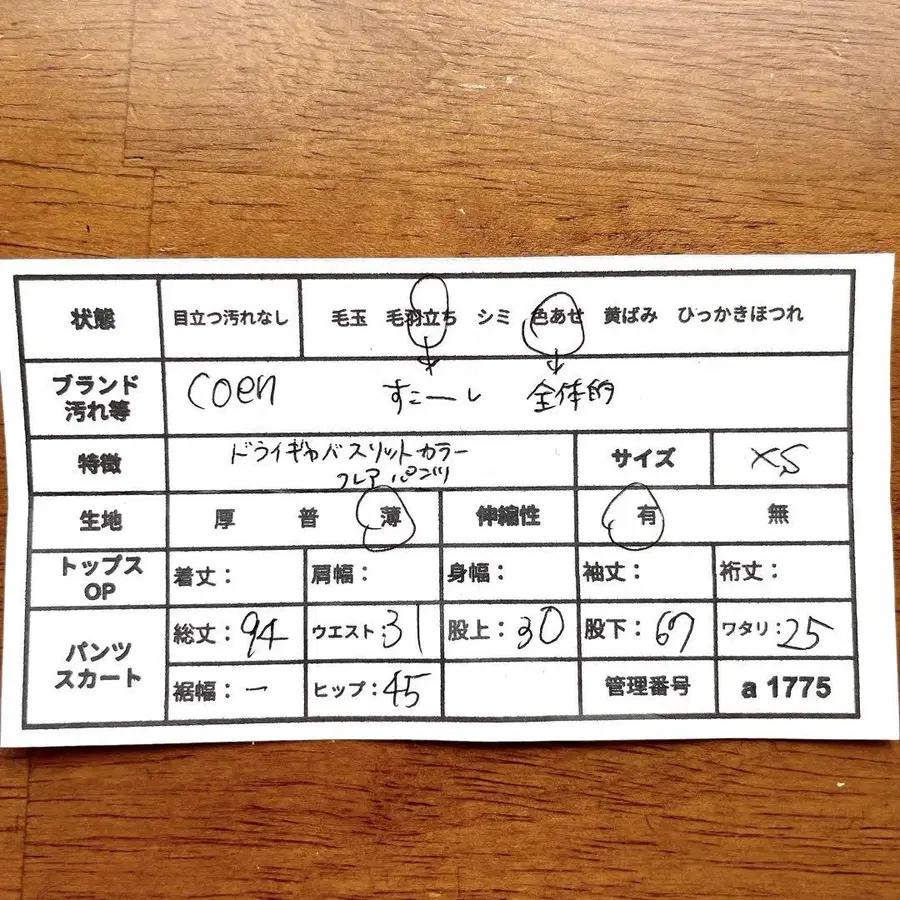 状態 目立つ汚れなし 毛玉 毛羽立ち シミ 色あせ 黄ばみ ひっかきほつれ
ブランド
汚れ等 coen すこーし 全体的
特徴 ドライギャバスリットカラー
フレアパンツ サイズ XS
生地 厚 普 薄 伸縮性 有 無
トップス
OP 着丈: 肩幅: 身幅: 袖丈: 裄丈:
パンツ
スカート 総丈:94 ウエスト:31 股上:30 股下:67 ワタリ:25
裾幅:ー ヒップ:45 管理番号 a 1775